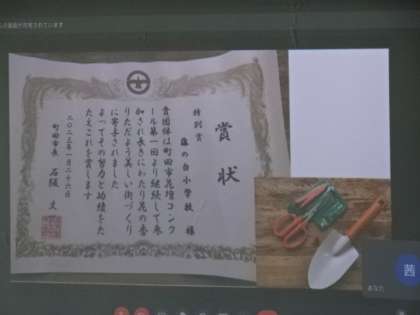 賞状
特別賞
藤の台小学校 様
貴団体は町田市花壇コンク
ール第一回より継続して参
加され長きにわたり花の香
りただよう美しい街づくり
に寄与されました
よってその努力と功績をた
たえこれを賞します
二〇二三年一月二十六日
町田市長 石阪 丈一
茜
あなた